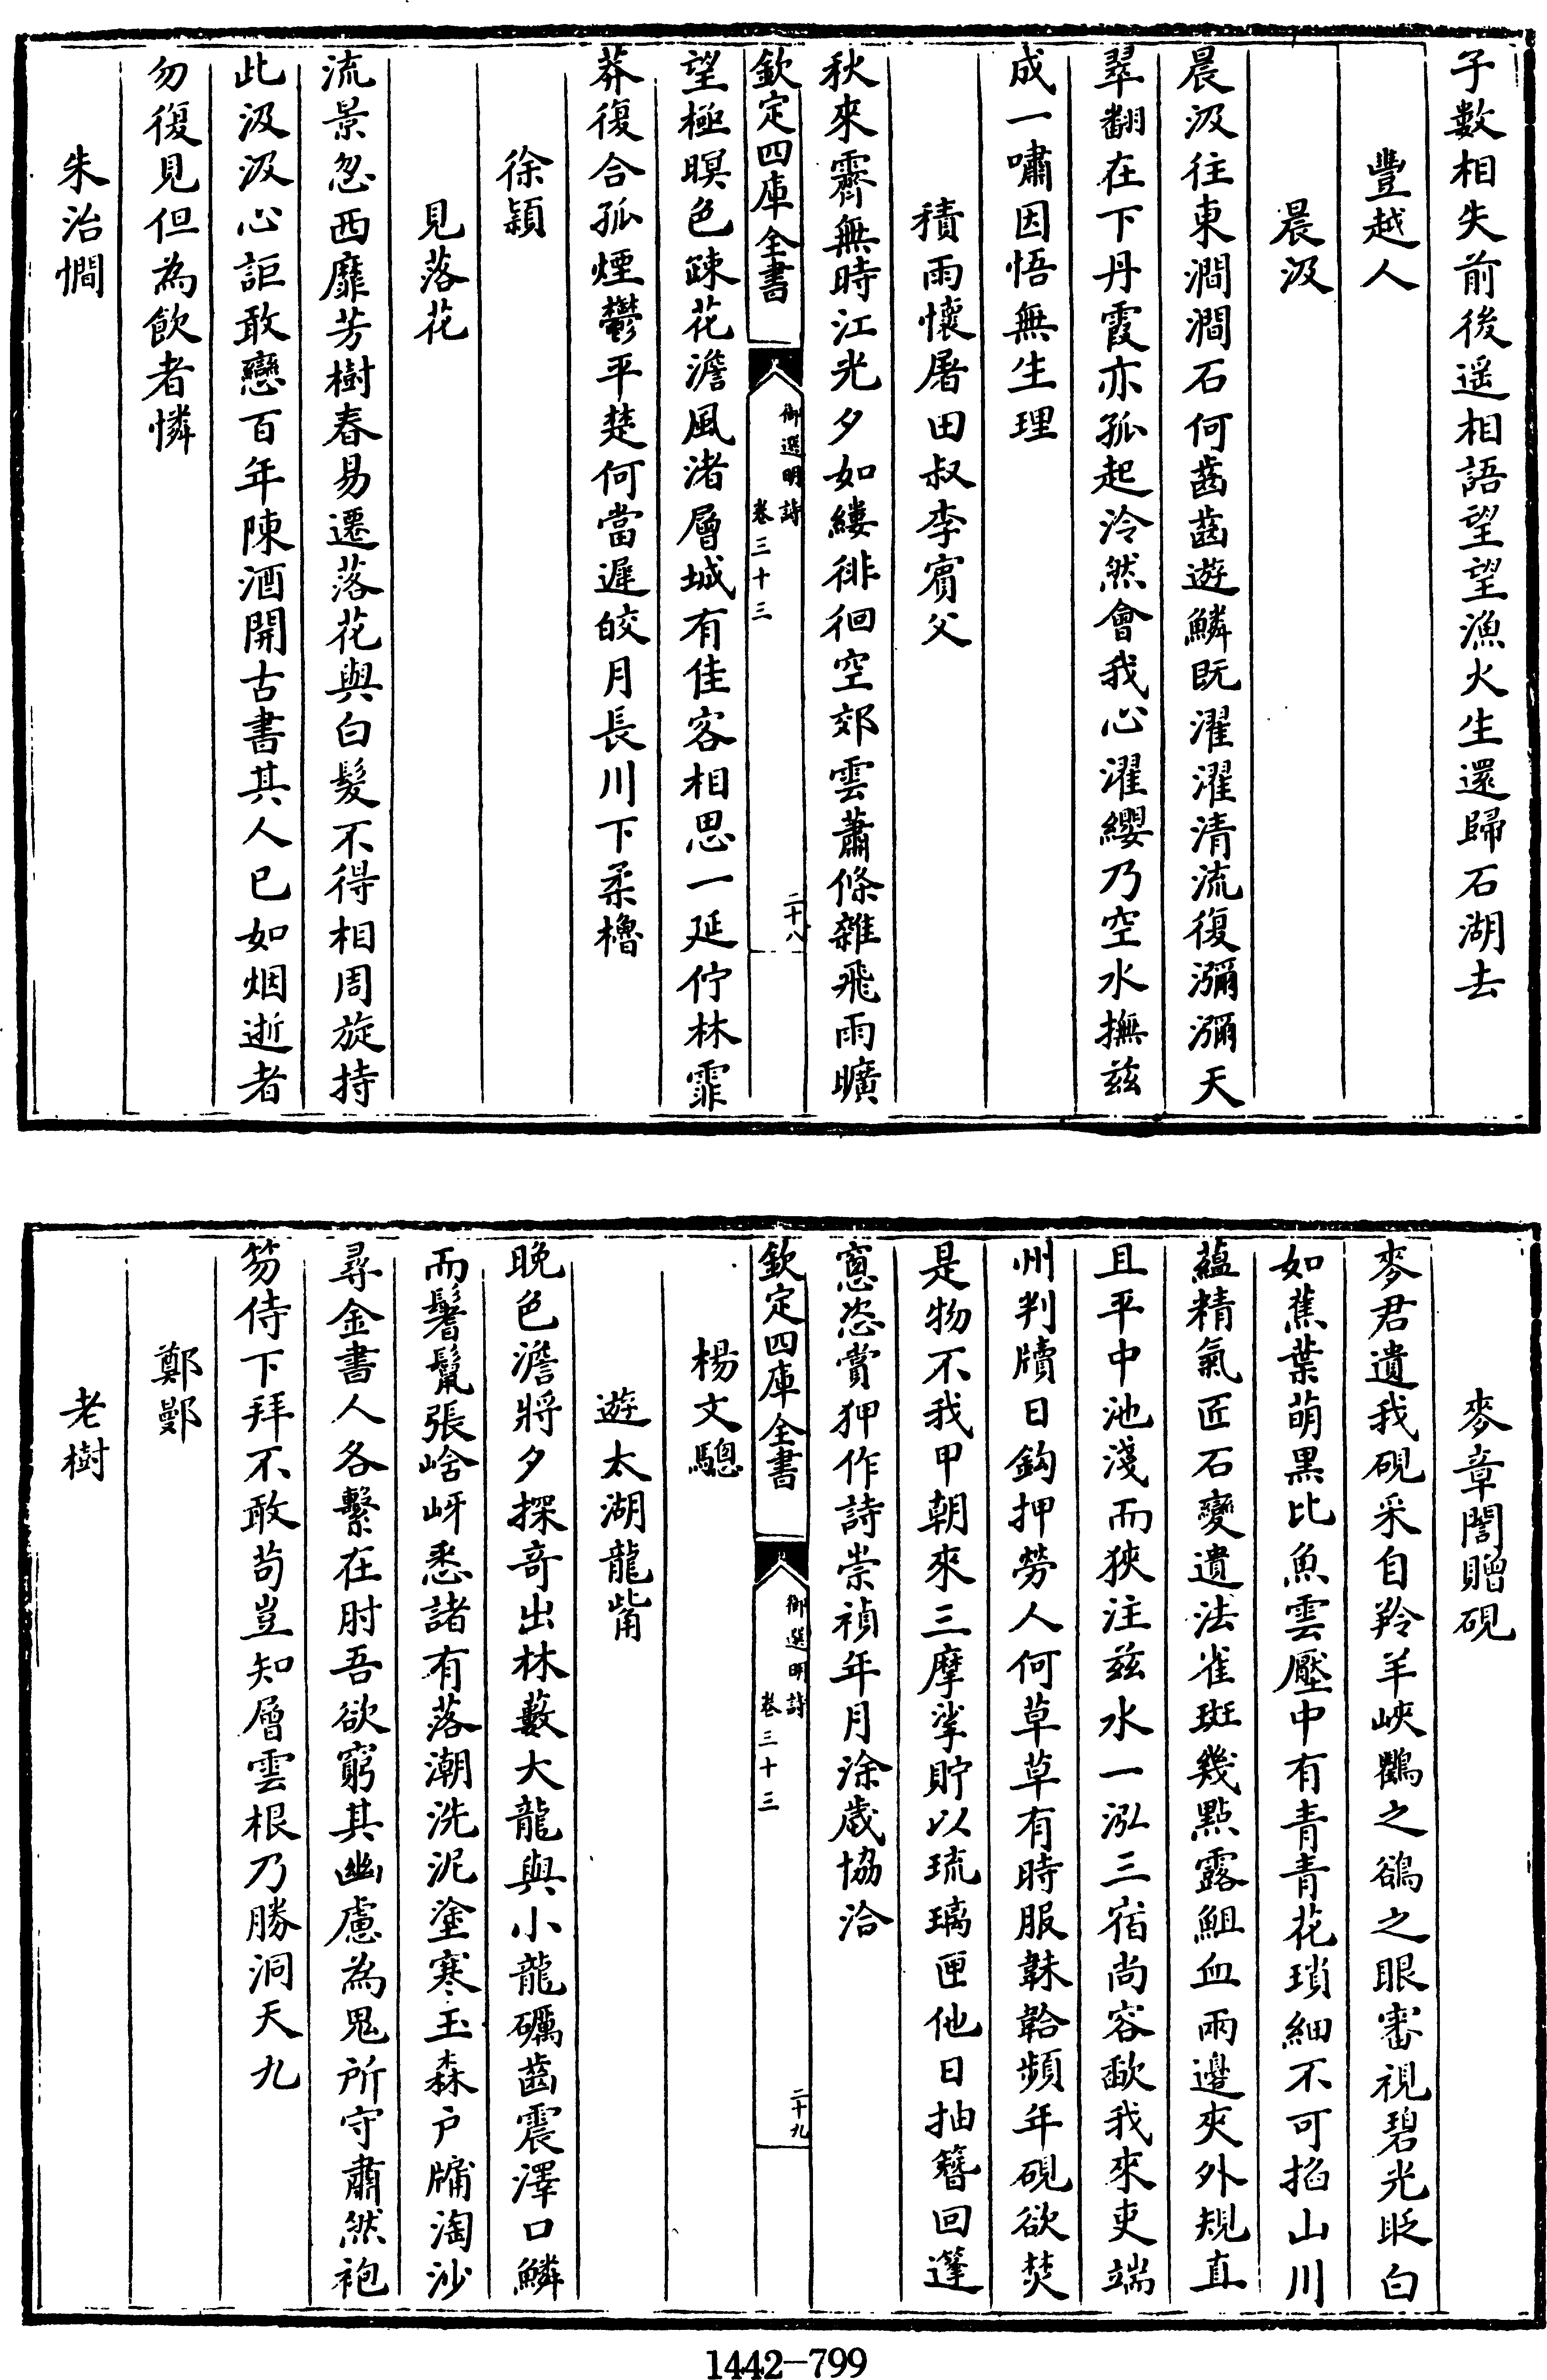 子數相失前後遥相語望望漁火生還歸石湖去
豐越人
晨汲
晨汲往東澗澗石何齒齒遊鱗既濯濯清流復瀰瀰天
翠翻在下丹霞亦孤起泠然會我心濯纓乃空水撫兹
成一嘯因悟無生理
積雨懷屠田叔李賓父
秋來霽無時江光夕如縷徘徊空郊雲蕭條雜飛雨曠
欽定四庫全書
御選明詩
卷三十三
二十八
望極暝色疎花澹風渚層城有佳客相思一延佇林霏
莽復合孤煙鬱平楚何當遲皎月長川下柔櫓
徐穎
見落花
流景忽西靡芳樹春易遷落花與白髮不得相周旋持
此汲汲心詎敢戀百年陳酒開古書其人已如烟逝者
勿復見但為飲者憐
朱治憪
麥章誾贈硯
麥君遺我硯采自羚羊峽鸜之鵒之眼審視碧光眨白
如蕉葉萌黒比魚雲壓中有青青花瑣細不可掐山川
藴精氣匠石變遺法雀斑幾點露䱉血兩邊夾外規直
且平中池淺而狹注兹水一泓三宿尚容歃我來吏端
州判牘日鈎押勞人何草草有時服韎韐頻年硯欲焚
是物不我甲朝來三摩挲貯以琉璃匣他日抽簪回篷
窻恣賞狎作詩崇禎年月涂歲協洽
欽定四庫全書
御選明詩
卷三十三
二十九
楊文驄
遊太湖龍觜
晚色澹將夕探奇出林藪大龍與小龍礪齒震澤口鱗
而鬐鬣張㟏岈悉諸有落潮洗泥塗寒玉森户牖淘沙
尋金書人各繫在肘吾欲窮其幽慮為鬼所守肅然袍
笏侍下拜不敢茍豈知層雲根乃勝洞天九
鄭鄤
老樹
1442-799